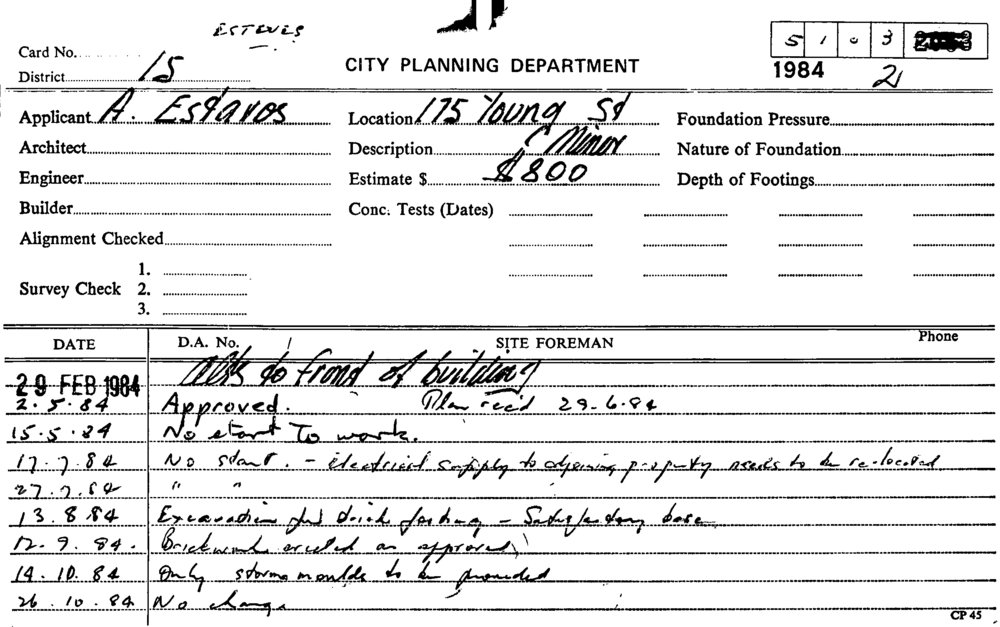 ESTEVES
Card No.
5 1 0 3
District 15
CITY PLANNING DEPARTMENT
1984 2
Applicant A. Estavos Location 175 Young St Foundation Pressure
Architect Description C Minor Nature of Foundation
Engineer Estimate $ $800 Depth of Footings
Builder Conc. Tests (Dates)
Alignment Checked
1.
Survey Check 2.
3.
DATE D.A. No. SITE FOREMAN Phone
29 FEB 1984 Alts to front of building
2.5.84 Approved. Plan rec'd 29.6.84
15.5.84 No start To work.
17.7.84 No start. - electrical supply to adjoining property needs to be re-located
27.7.84 " "
13.8.84 Excavation for brick footing - Satisfactory base
12.9.84. Brickwork erected as approved
14.10.84 Only storm moulds to be provided
26.10.84 No change
CP 45